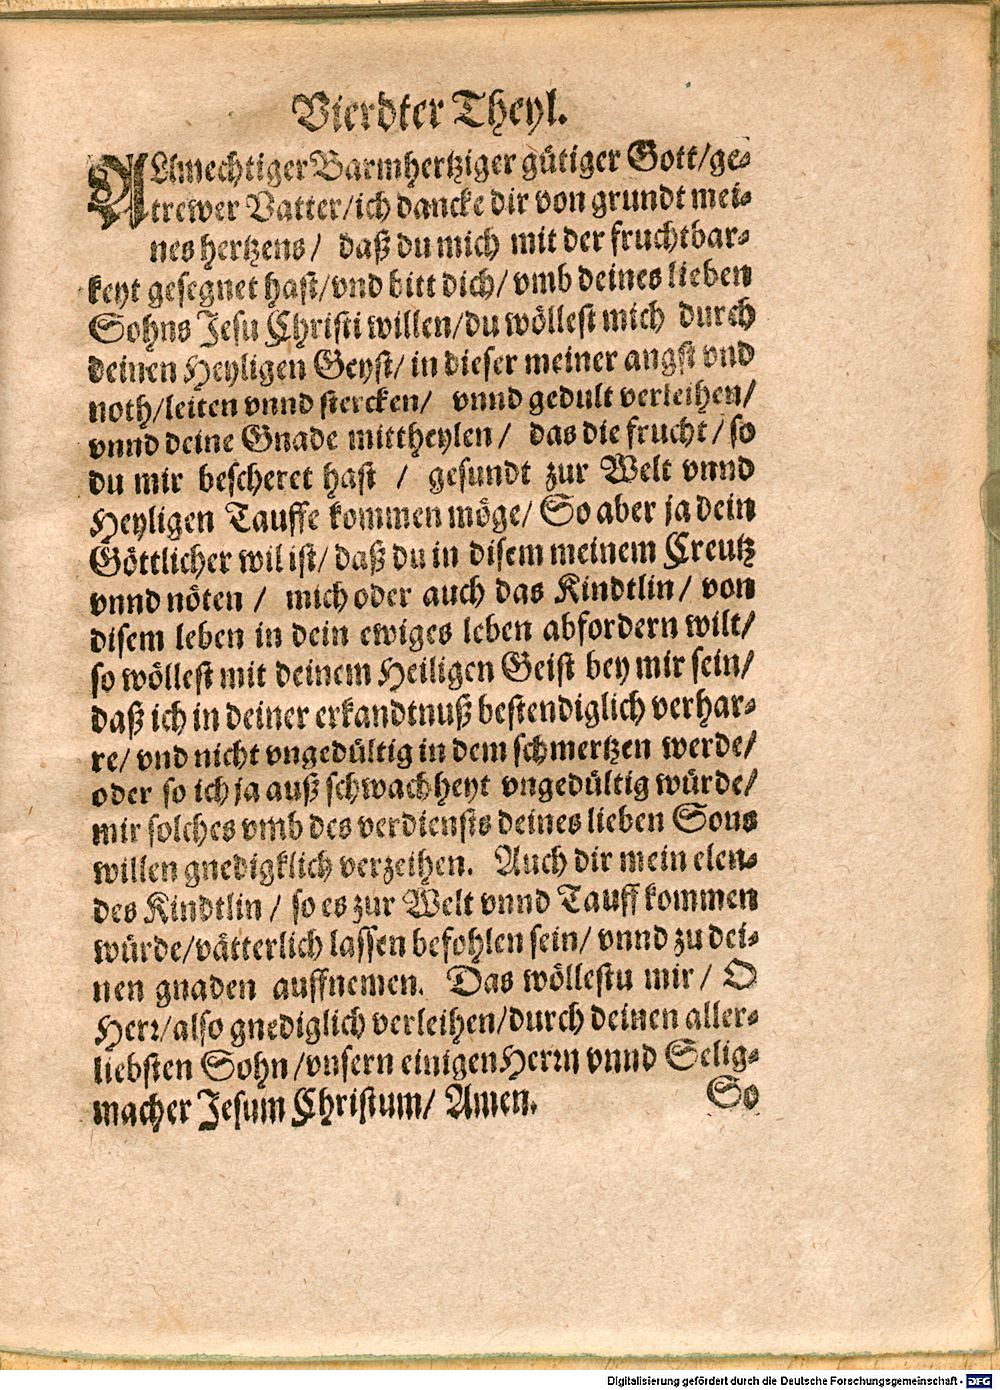 Vierdter Theyl.
ALlmechtiger Barmhertziger gütiger Gott/ge-
trewer Vatter/ich dancke dir von grundt mei-
nes hertzens/ daß du mich mit der fruchtbar-
keyt gesegnet hast/vnd bitt dich/ vmb deines lieben
Sohns Jesu Christi willen/du wöllest mich durch
deinen Heyligen Geyst/ in dieser meiner angst vnd
noth/leiten vnnd stercken/ vnnd gedult verleihen/
vnnd deine Gnade mittheylen/ das die frucht/ so
du mir bescheret hast / gesundt zur Welt vnnd
Heyligen Tauffe kommen möge/ So aber ja dein
Göttlicher wil ist/ daß du in disem meinem Creutz
vnnd nöten / mich oder auch das Kindtlin/ von
disem leben in dein ewiges leben abfordern wilt/
so wöllest mit deinem Heiligen Geist bey mir sein/
daß ich in deiner erkandtnuß bestendiglich verhar-
re/ vnd nicht vngedültig in dem schmertzen werde/
oder so ich ja auß schwachheyt vngedültig würde/
mir solches vmb des verdiensts deines lieben Sons
willen gnedigklich verzeihen. Auch dir mein elen-
des Kindtlin / so es zur Welt vnnd Tauff kommen
würde/vätterlich lassen befohlen sein/ vnnd zu dei-
nen gnaden auffnemen. Das wöllestu mir/ O
Herr/also gnediglich verleihen/durch deinen aller-
liebsten Sohn/vnsern einigen Herrn vnnd Selig-
macher Jesum Christum/ Amen.
So
Digitalisierung gefördert durch die Deutsche Forschungsgemeinschaft - DFG